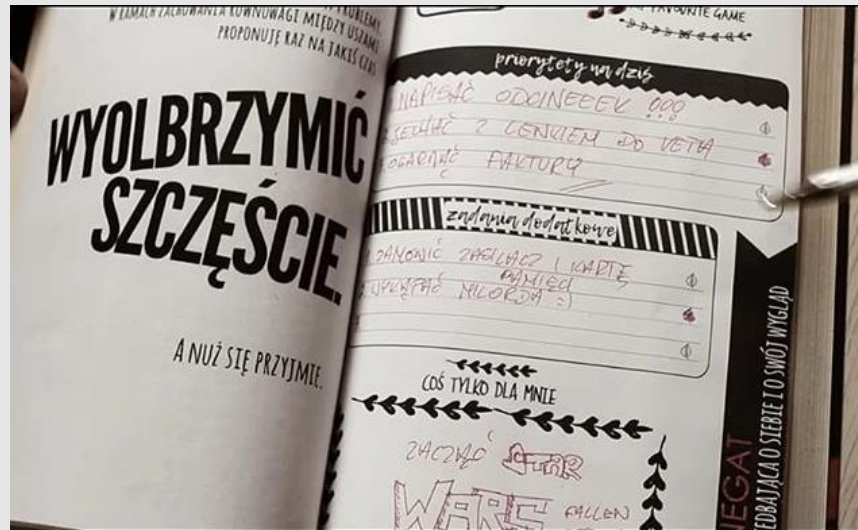 PROBLEMY.
W RAMACH ZACHOWANIA RÓWNOWAGI MIĘDZY USZAMI
PROPONUJĘ RAZ NA JAKIŚ CZAS
WYOLBRZYMIĆ
SZCZĘŚCIE.
A NUŻ SIĘ PRZYJMIE.
FAVOURITE GAME
priorytety na dziś
NAPISAĆ ODCINEEEK !!!
JECHAĆ Z LENKIEM DO VETA
OGARNĄĆ FAKTURY
zadania dodatkowe
1. ZAMÓWIĆ ZASILACZ I KARTĘ
PAMIĘCI
2. WYKĄPAĆ MILORDA :)
3
COŚ TYLKO DLA MNIE
ZACZĄĆ STAR
WARS FALLEN
NEGAT
O SIEBIE I O SWÓJ WYGLĄD